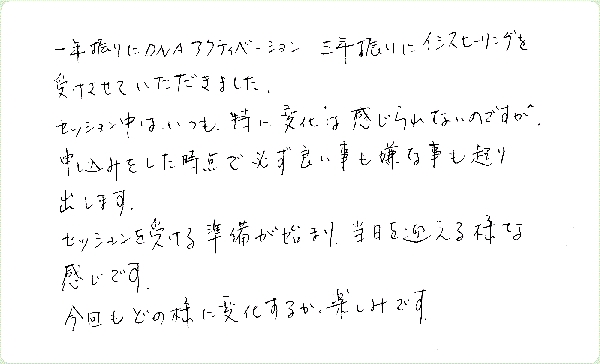 一年振りにDNAアクティベーション 三年振りにイシスヒーリングを
受けさせていただきました。
セッション中は、いつも、特に変化は感じられないのですが、
申し込みをした時点で必ず良い事も嫌な事も起り
出します。
セッションを受ける準備が始まり、当日を迎える様な
感じです。
今回もどの様に変化するか、楽しみです。